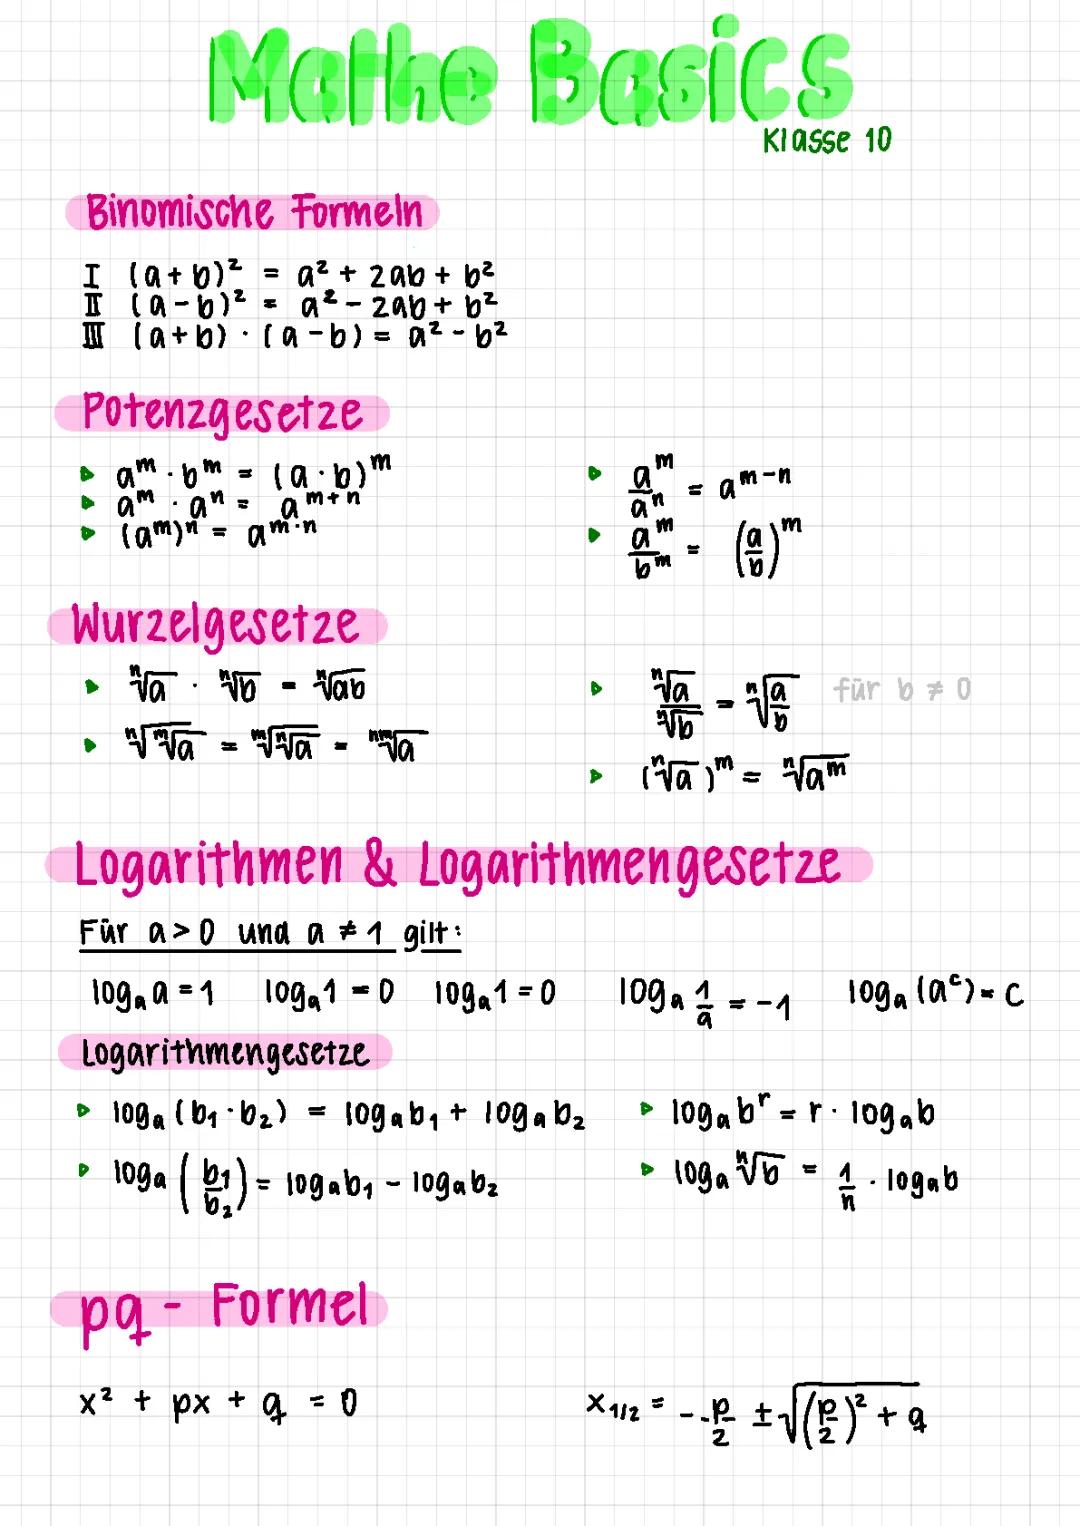 Mathe Basics
Klasse 10
Binomische Formeln
I (a+b)² = a² + 2ab + b²
II (a-b)² = a² - 2ab + b²
III (a+b) · (a-b) = a² - b²
Potenzgesetze
▷ aᵐ · bᵐ = (a·b)ᵐ
▷ aᵐ · aⁿ = aᵐ⁺ⁿ
▷ (aᵐ)ⁿ = aᵐ·ⁿ
▷ aᵐ/aⁿ = aᵐ⁻ⁿ
▷ aᵐ/bᵐ = (a/b)ᵐ
Wurzelgesetze
▷ ⁿ√a · ⁿ√b = ⁿ√ab
▷ ⁿ√ᵐ√a = ᵐ√ⁿ√a = ⁿᵐ√a
▷ ⁿ√a/ⁿ√b = ⁿ√(a/b) für b ≠ 0
▷ (ⁿ√a)ᵐ = ⁿ√aᵐ
Logarithmen & Logarithmengesetze
Für a>0 und a ≠ 1 gilt:
logₐ a = 1 logₐ 1 = 0 logₐ 1 = 0 logₐ 1/a = -1 logₐ (aᶜ) = c
Logarithmengesetze
▷ logₐ (b₁ · b₂) = logₐ b₁ + logₐ b₂
▷ logₐ (b₁/b₂) = logₐ b₁ - logₐ b₂
▷ logₐ bʳ = r · logₐ b
▷ logₐ ⁿ√b = 1/n · logₐ b
pq - Formel
x² + px + q = 0
x₁/₂ = --p/2 ± √((p/2)² + q)